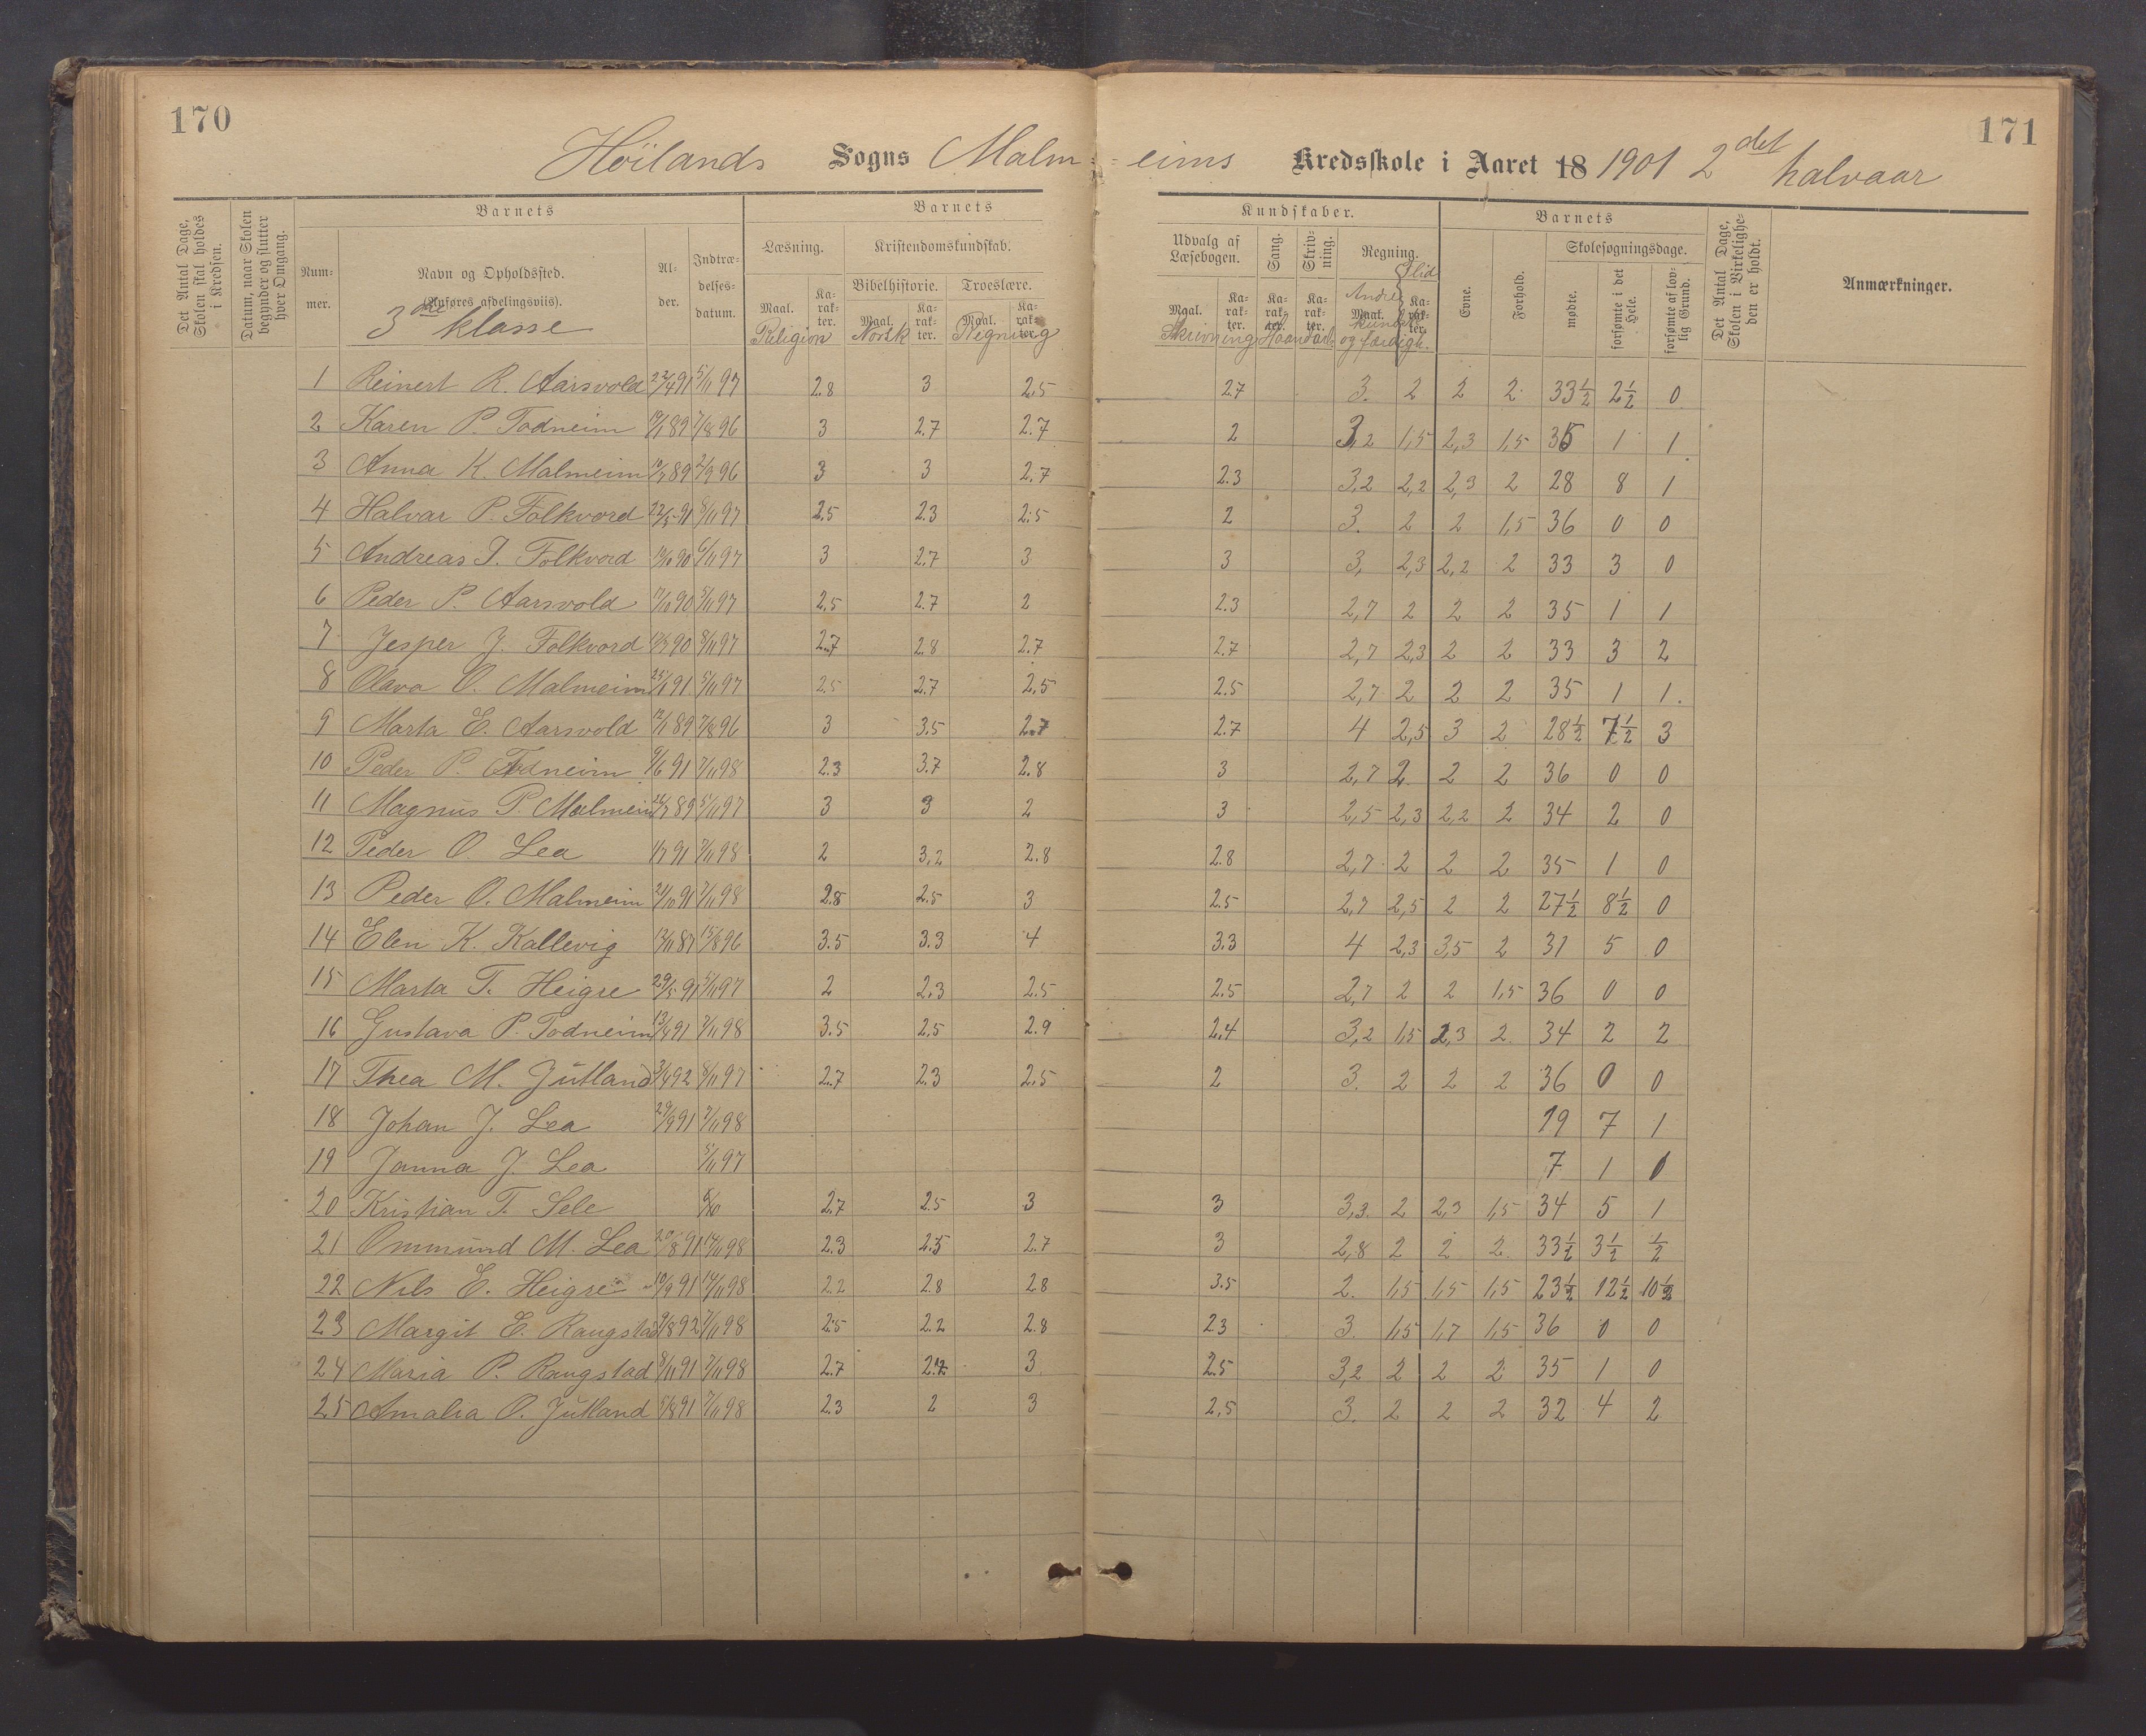 170
171
Höilands Sogns Malm=eims Kredsskole i Aaret 18 1901 2det halvaar
Det Antal Dage, Skolen skal holdes i Kredsen.
Datum, naar Skolen begynder og slutter hver Omgang.
Barnets
Nummer.
Navn og Opholdssted.
(Anføres afdelingsviis).
3die klasse
Alder.
Indtrædelsesdatum.
Barnets
Læsning.
Kristendomskundskab.
Bibelhistorie. Troeslære.
Maal. Karakter. Maal. Karakter. Maal. Karakter.
Religion Norsk Regning
Kundskaber.
Udvalg af Læsebogen. Sang. Skrivning. Regning.
Maal. Karakter. Karakter. Karakter. Maal. Karakter.
Skrivning Haandarb. Andre kundsk. og færdigh. Flid
Barnets
Evne. Forhold.
Skolesøgningsdage.
mødte. forsømte i det Hele. forsømte af lovlig Grund.
Det Antal Dage, Skolen i Virkeligheden er holdt.
Anmærkninger.
1 Reinert R. Aarsvold 22/4 91 5/11 97 2.8 3 2,5 2.7 3. 2 2 2 33½ 2½ 0
2 Karen P. Todneim 19/1 89 7/8 96 3 2.7 2.7 2 3,2 1,5 2,3 1,5 35 1 1
3 Anna K. Malmeim 10/7 89 2/9 96 3 3 2.7 2.3 3,2 2,2 2,3 2 28 8 1
4 Halvar P. Folkvord 22/5 91 8/11 97 2,5 2.3 2.5 2 3. 2 2 1,5 36 0 0
5 Andreas T. Folkvord 19/10 90 6/11 97 3 2.7 3 3 3, 2,3 2,2 2 33 3 0
6 Peder P. Aarsvold 17/10 90 5/11 97 2,5 2.7 2 2.3 2,7 2 2 2 35 1 1
7 Jesper J. Folkvord 17/7 90 8/11 97 2.7 2.8 2.7 2.7 2,7 2,3 2 2 33 3 2
8 Olava O. Malmeim 25/1 91 5/11 97 2.5 2.7 2,5 2.5 2,7 2 2 2 35 1 1.
9 Marta E. Aarsvold 12/1 89 7/8 96 3 3.5 2.7 2.7 4 2,5 3 2 28½ 7½ 3
10 Peder P. Todneim 9/6 91 7/11 98 2.3 3.7 2.8 3 2,7 2 2 2 36 0 0
11 Magnus P. Malmeim 22/7 89 5/11 97 3 3 2 3 2,5 2,3 2,2 2 34 2 0
12 Peder O. Lea 1/7 91 7/11 98 2 3,2 2.8 2.8 2,7 2 2 2 35 1 0
13 Peder O. Malmeim 21/10 91 7/11 98 2.8 2.5 3 2.5 2,7 2,5 2 2 27½ 8½ 0
14 Elen K. Kallevig 12/11 87 15/8 96 3.5 3.3 4 3.3 4 2,3 3,5 2 31 5 0
15 Marta T. Heigre 29/5 91 5/11 97 2 2,3 2.5 2.5 2,7 2 2 1,5 36 0 0
16 Gustava P. Todneim 13/4 91 7/11 98 3.5 2,5 2.9 2.4 3,2 1,5 2,3 2. 34 2 2
17 Thea M. Jütland 3/4 92 8/11 97 2.7 2.3 2,5 2 3. 2 2 2 36 0 0
18 Johan J. Lea 29/9 91 7/11 98 19 7 1
19 Janna J. Lea 5/11 97 7 1 0
20 Kristian T. Sele 2.7 2.5 3 3 3,3. 2 2,3 1,5 34 5 1
21 Ommund M. Lea 20/8 91 14/11 98 2.3 2.5 2.7 3 2,8 2 2 2. 33½ 3½ ½
22 Nils E. Heigre 10/9 91 14/11 98 2.2 2.8 2.8 3.5 2. 1,5 1,5 1,5 23½ 12½ 10½
23 Margit E. Raugstad 9/8 92 7/11 98 2.5 2.2 2.8 2.3 3. 1,5 1,7 1,5 36 0 0
24 Maria P. Raugstad 8/11 91 7/11 98 2.7 2.7 3 2.5 3,2 2 2 2 35 1 0
25 Amalia O. Jütland 5/8 91 7/11 98 2.3 2 3 2,5 3. 2 2 2 32 4 2